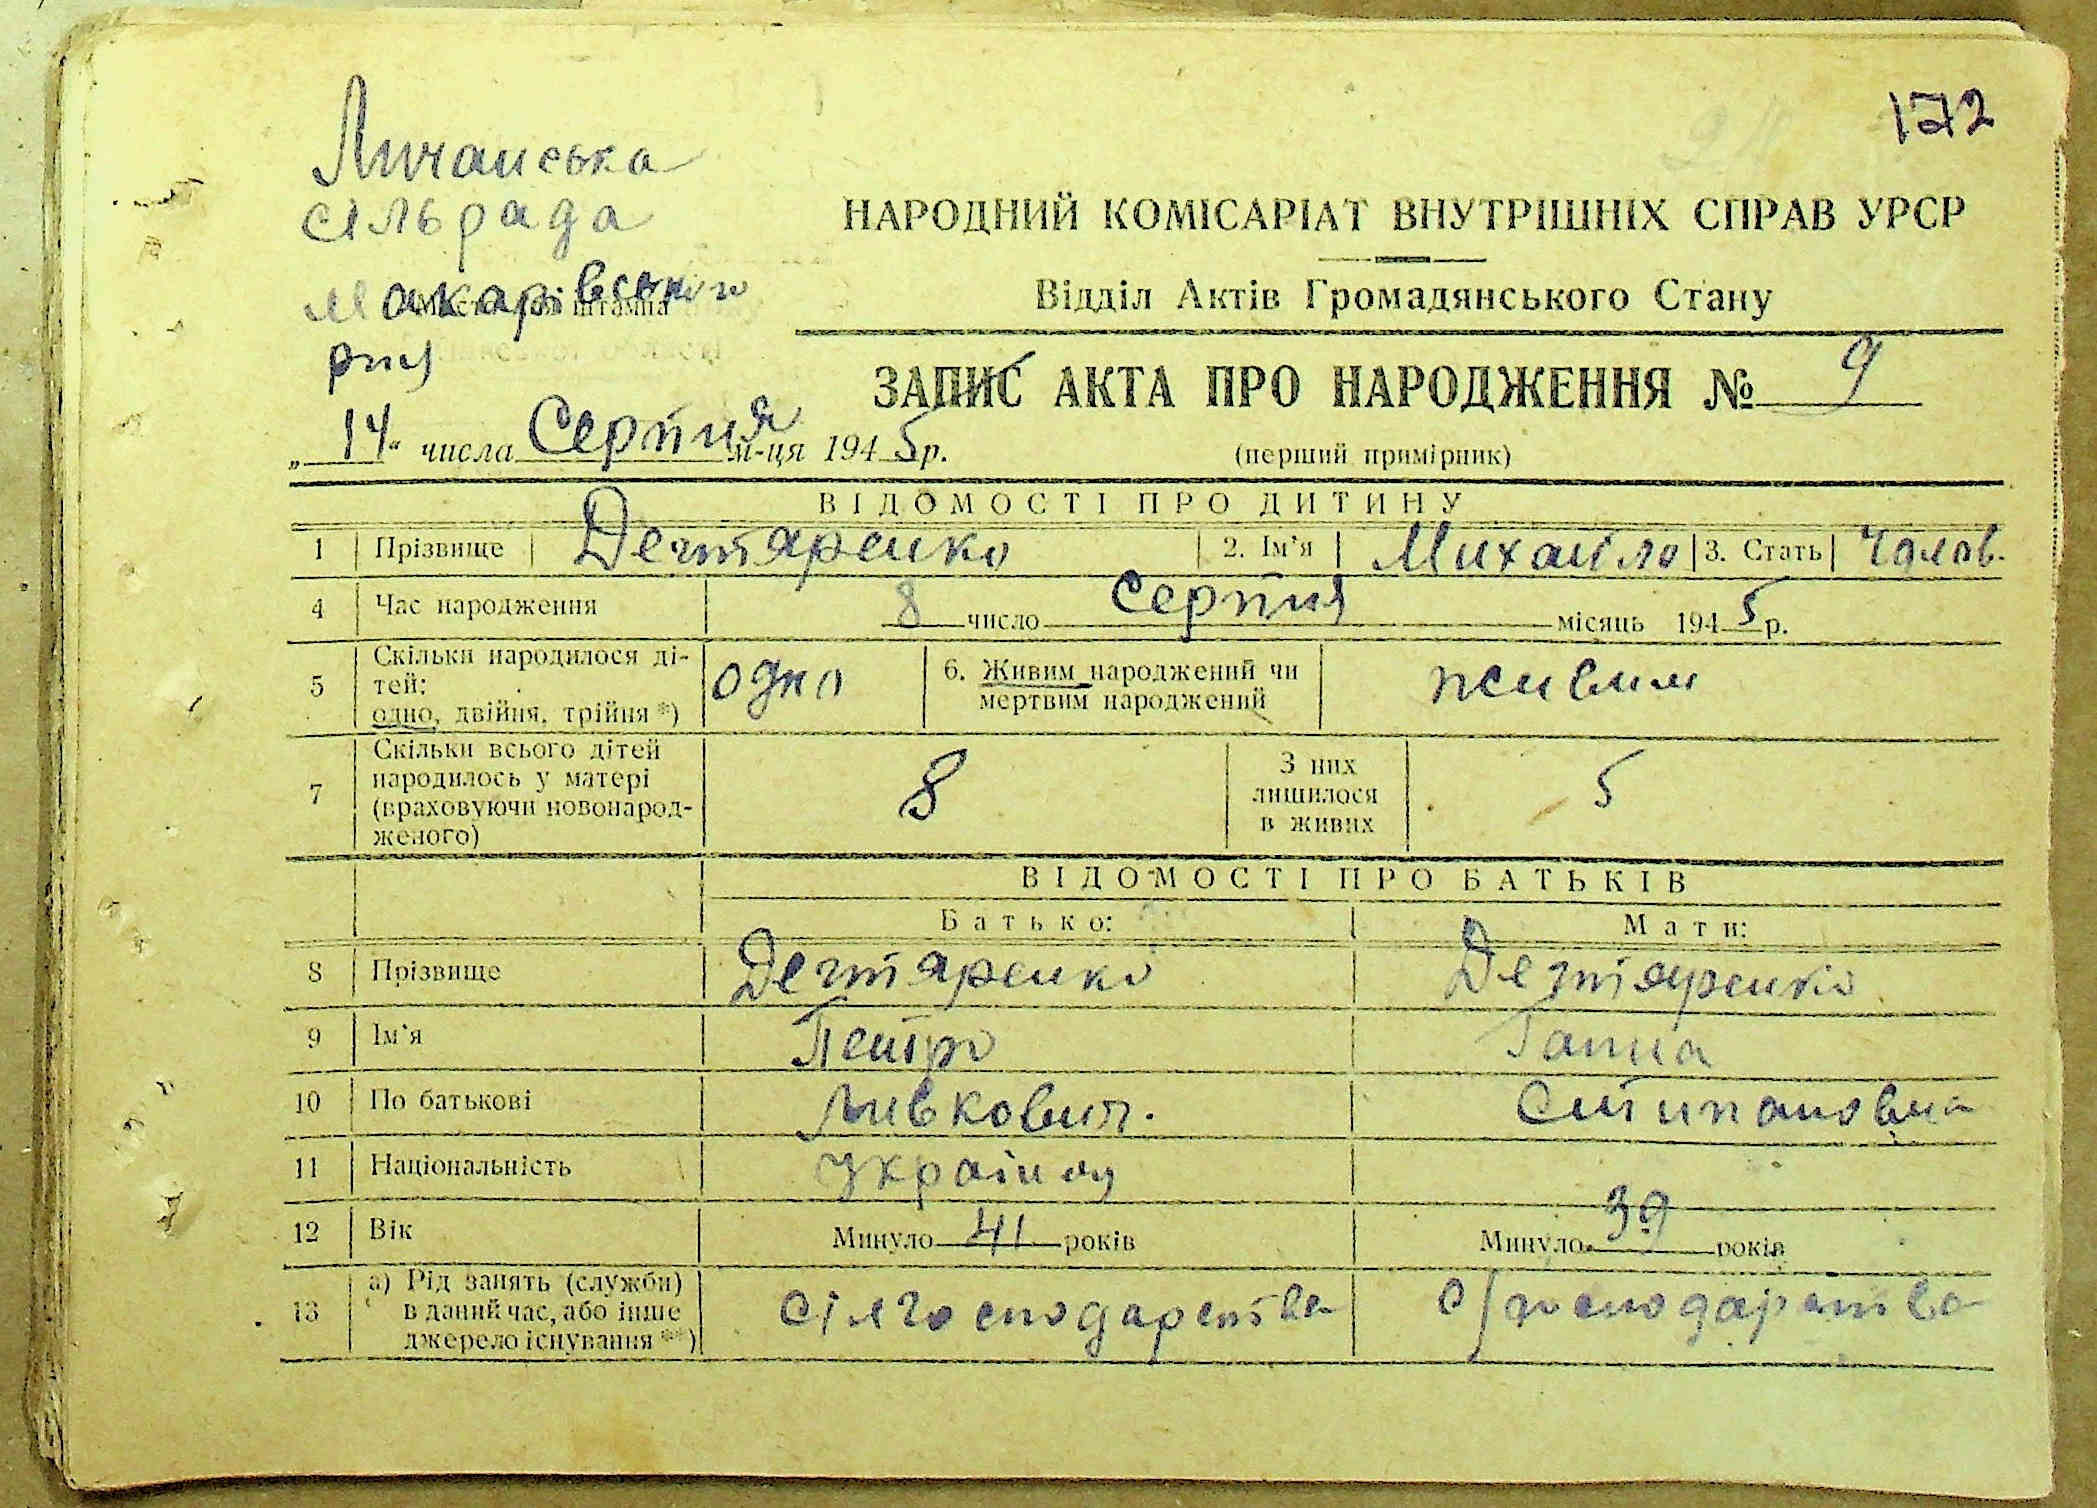 172
Личанська
сільрада
Макарівського
р-ну
Місце для штампа
НАРОДНИЙ КОМІСАРІАТ ВНУТРІШНІХ СПРАВ УРСР
Відділ Актів Громадянського Стану
ЗАПИС АКТА ПРО НАРОДЖЕННЯ № 9
„14“ числа Серпня м-ця 1945 р.
(перший примірник)
ВІДОМОСТІ ПРО ДИТИНУ
1 Прізвище Дегтяренко 2. Ім'я Михайло 3. Стать Чолов.
4 Час народження 8 число серпня місяць 1945 р.
5 Скільки народилося ді-
тей:
одно, двійня, трійня *) одно
6. Живим народжений чи
мертвим народжений живим
7 Скільки всього дітей
народилось у матері
(враховуючи новонарод-
женого) 8
З них
лишилося
в живих 5
ВІДОМОСТІ ПРО БАТЬКІВ
Батько: Мати:
8 Прізвище Дегтяренко Дегтяренко
9 Ім'я Петро Ганна
10 По батькові Левкович. Стипановна
11 Національність
12 Вік Минуло 41 років Минуло 39 років
13 а) Рід занять (служби)
в даний час, або інше
джерело існування **) сілгосподарства с/господарства